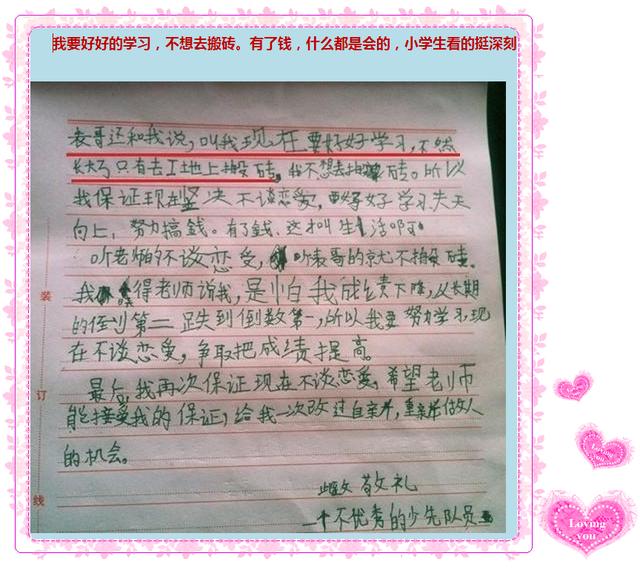 我要好好的学习，不想去搬砖。有了钱，什么都是会的，小学生看的挺深刻
表哥还和我说，叫我现在要好好学习，不然
长大了只有去工地上搬砖。我不想去搬砖。所以
我保证现在坚决不谈恋爱，要好好学习天天
向上，努力搞錢。有了錢，这才叫生活啊
听老师的不谈恋爱，听表哥的就不搬砖。
我得老师说我，是怕我成绩下降，从长期
的倒第二跌到倒数第一，所以我要努力学习，现
在不谈恋爱，争取把成绩提高。
最后，我再次保证现在不谈恋爱，希望老师
能接受我的保证，给我一次改过自亲，重亲做人
的机会。
敬礼
一个不优秀的少先队员
装
订
线
Loving
you
Loving
you